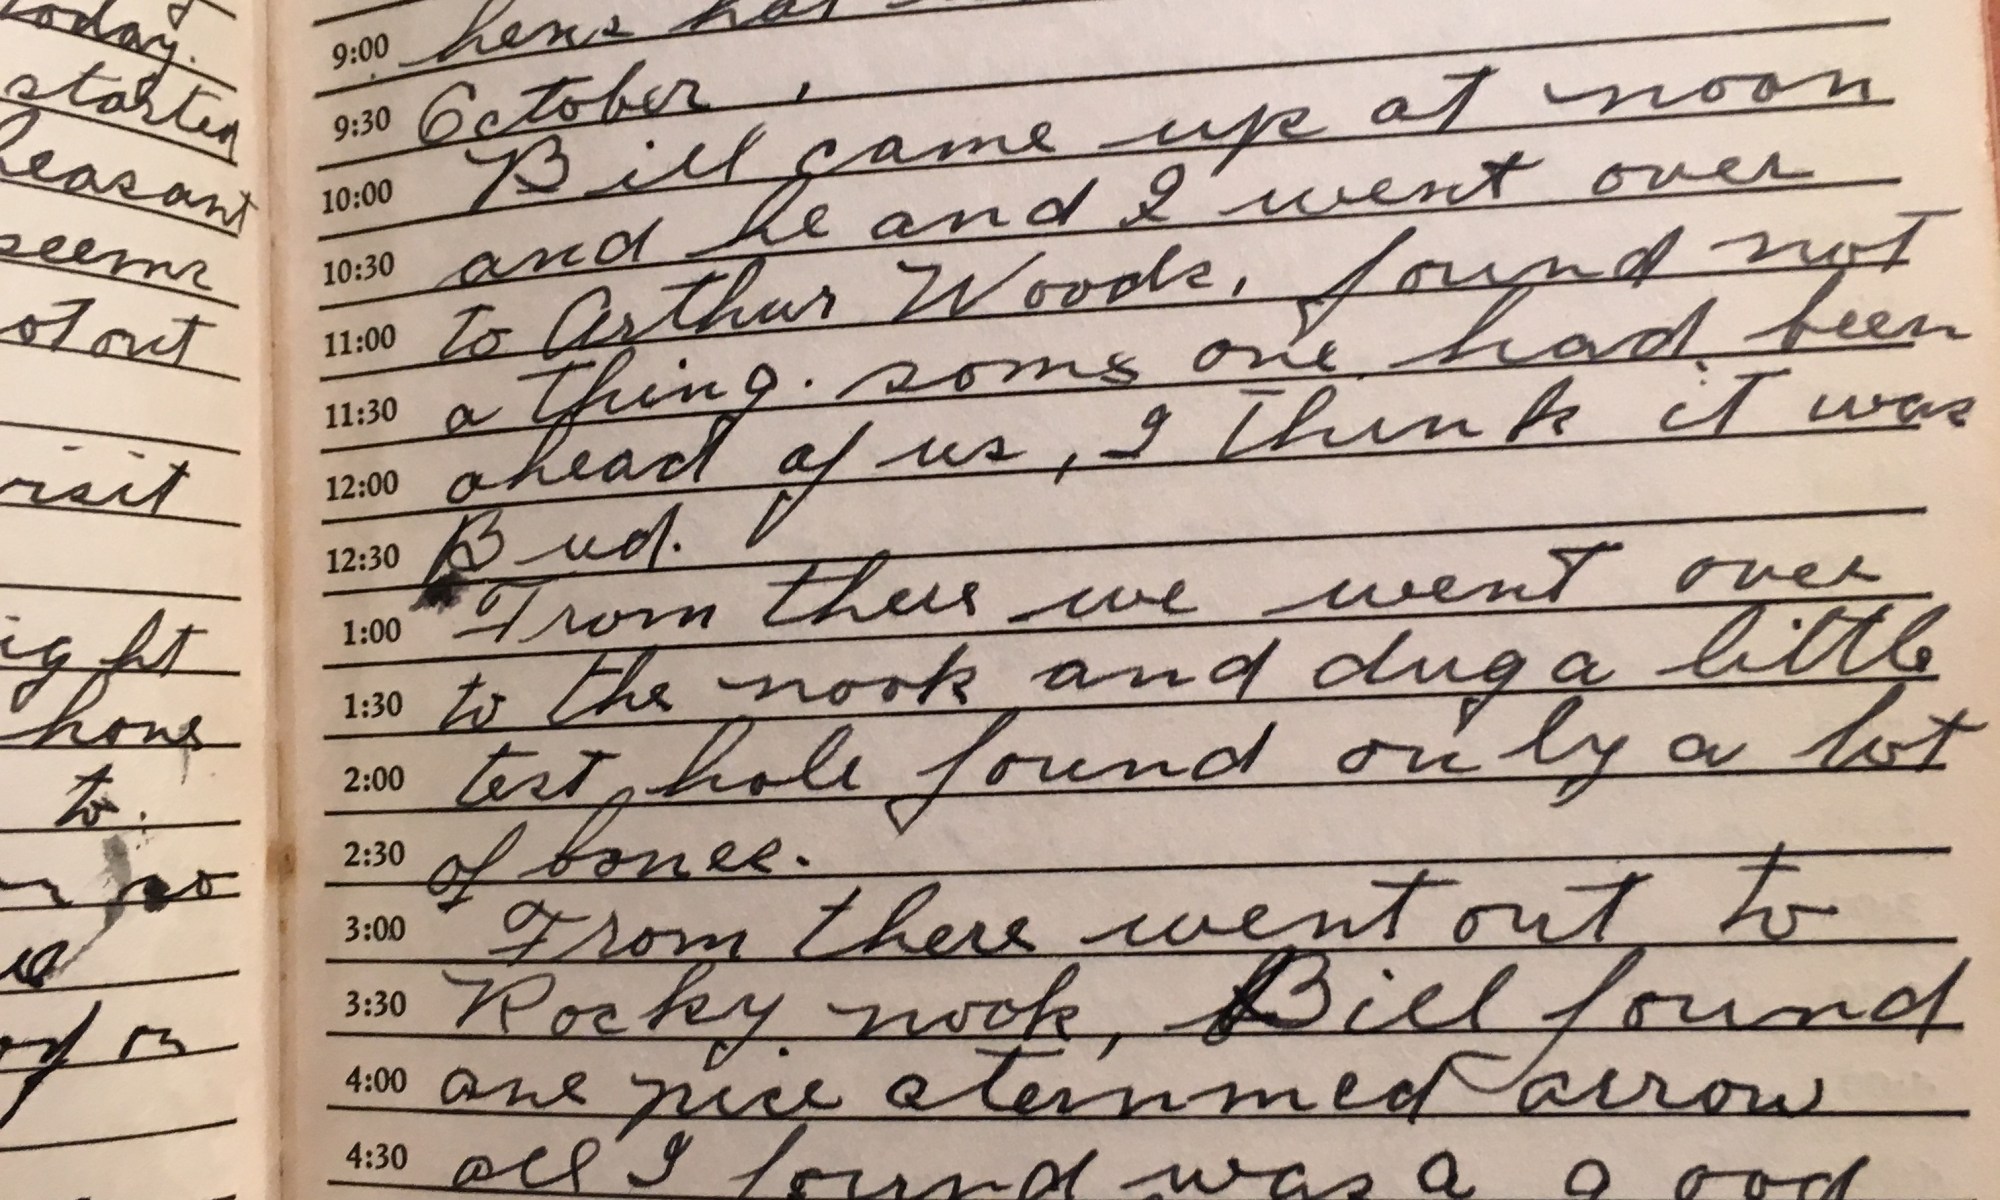 today.
started
seems
ot out
visit
to.
9:00
9:30 October,
10:00 Bill came up at noon
10:30 and he and I went over
11:00 to Arthur Woods, found not
11:30 a thing. some one had been
12:00 ahead of us, I think it was
12:30 Bud.
1:00 From there we went over
1:30 to the nook and dug a little
2:00 test hole found only a lot
2:30 of bones.
3:00 From there went out to
3:30 Rocky nook, Bill found
4:00 one nice stemmed arrow
4:30 all I found was a good